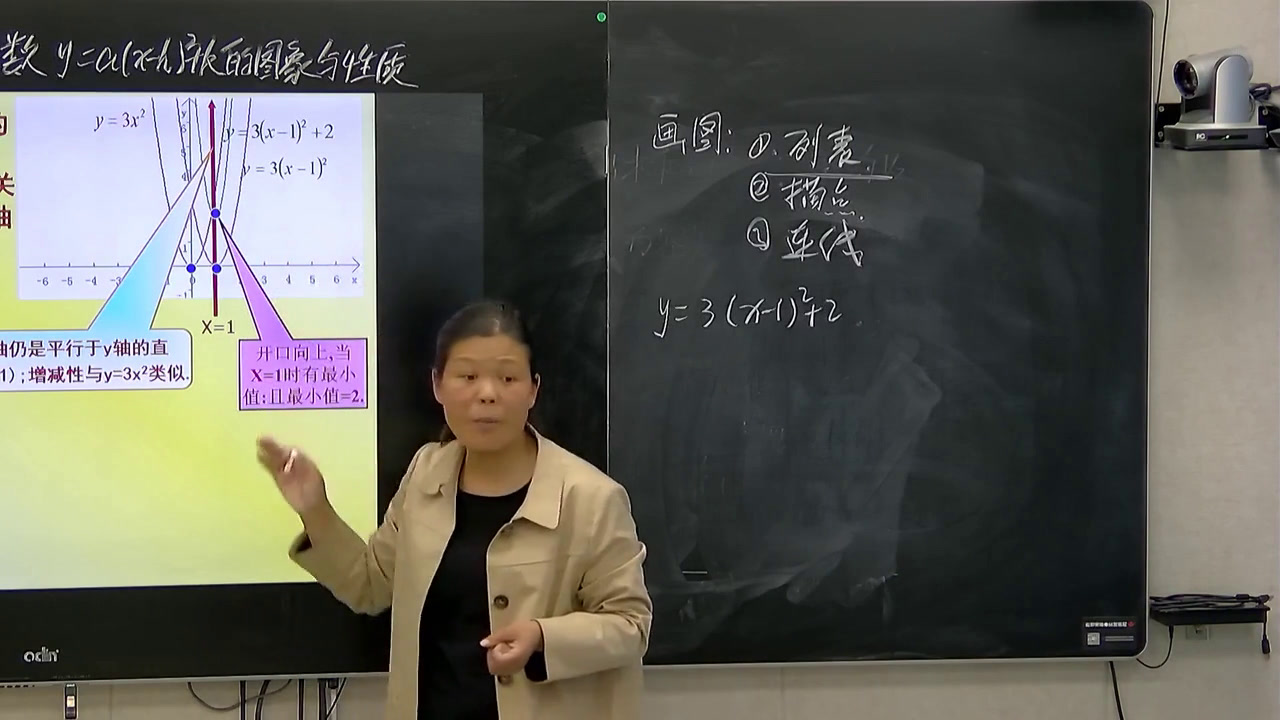 数 y=a(x-h)²+k的图象与性质
的
关
轴
y=3x²
y=3(x-1)²+2
y=3(x-1)²
-6 -5 -4 -3 0 3 4 5 6 x
y
1
-1
X=1
轴仍是平行于y轴的直
1);增减性与y=3x²类似.
开口向上,当
X=1时有最小
值:且最小值=2.
画图: ①.列表
②描点
③连线
y=3(x-1)²+2